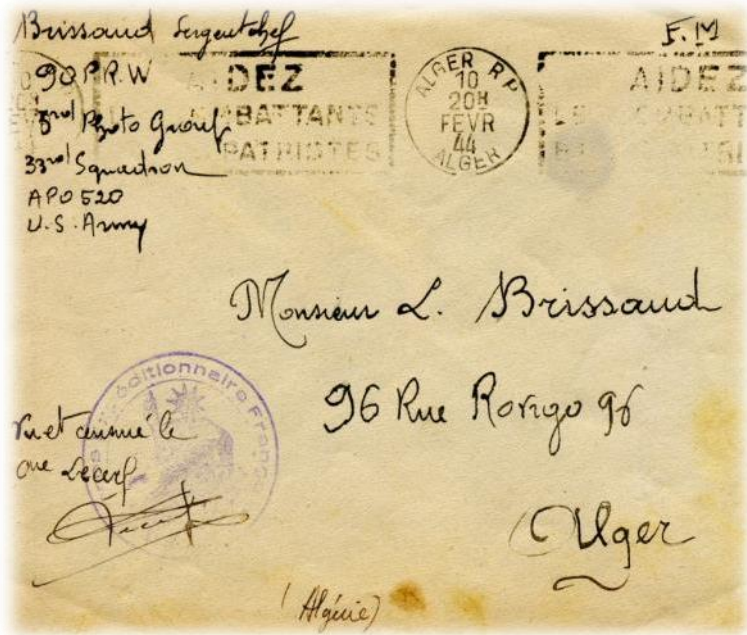 Brissaud Sergent chef
F.M
90 P.R.W
3rd Photo Group
33rd Squadron
APO 520
U.S. Army
AIDEZ
COMBATTANTS
PATRISTES
ALGER R.P
10
20H
FEVR
44
ALGER
AIDEZ
Monsieur L. Brissaud
96 Rue Rovigo 96
Alger
(Algérie)
éditionnaire França
Vu et censuré le
Lecerf